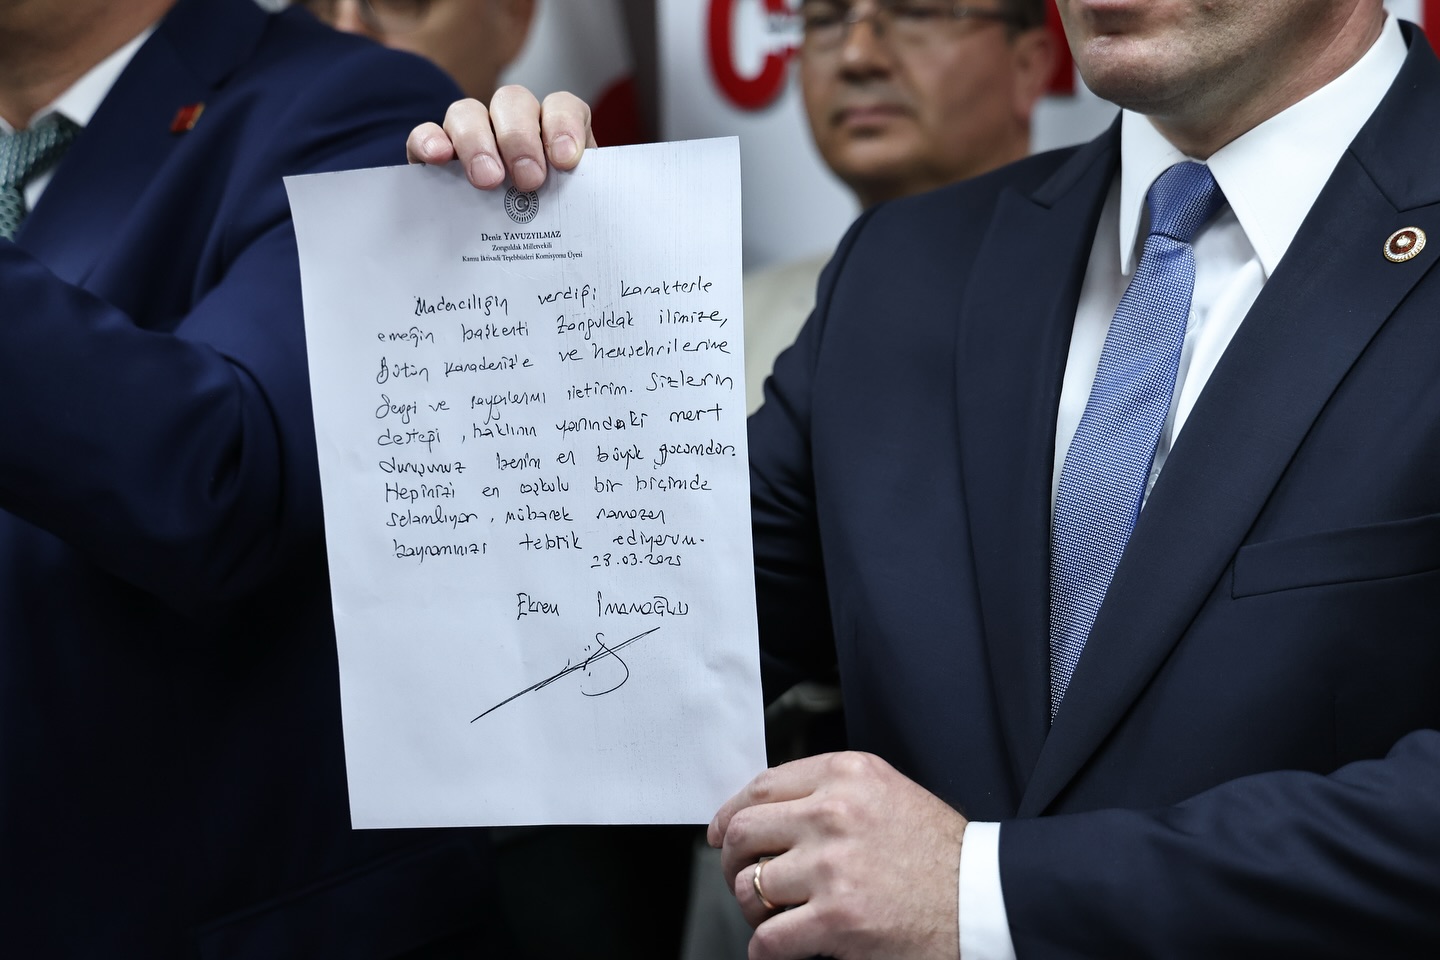 Deniz YAVUZYILMAZ
Zonguldak Milletvekili
Kamu İktisadi Teşebbüsleri Komisyonu Üyesi
Madenciliğin verdiği karakterle
emeğin başkenti Zonguldak ilimize,
Bütün Karadeniz'e ve hemşehrilerime
Sevgi ve saygılarımı iletirim. Sizlerin
desteği, haklının yanındaki mert
duruşunuz benim en büyük gücümdür.
Hepinizi en coşkulu bir biçimde
selamlıyor, mübarek ramazan
bayramınızı tebrik ediyorum.
28.03.2025
Ekrem İMAMOĞLU
C